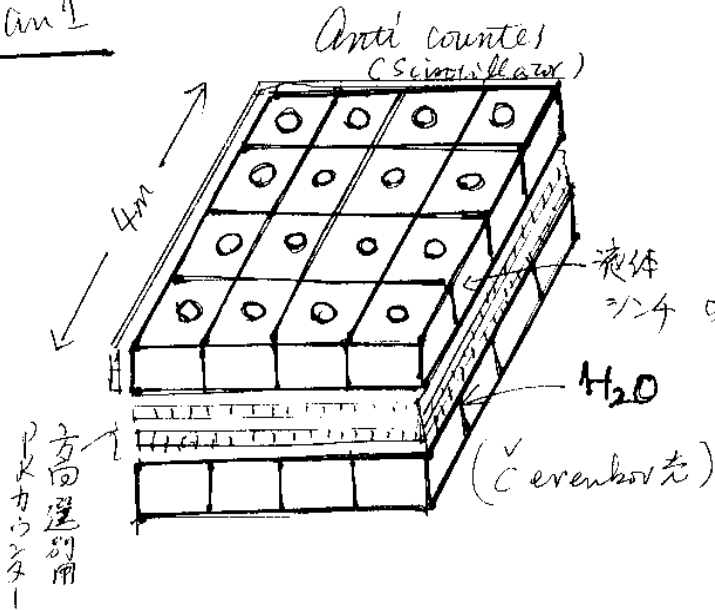 an 1
Anti counter
(Scintillator)
4m
液体
シンチ
H₂O
(Čerenkov 光)
方向選別用
PRカウンター